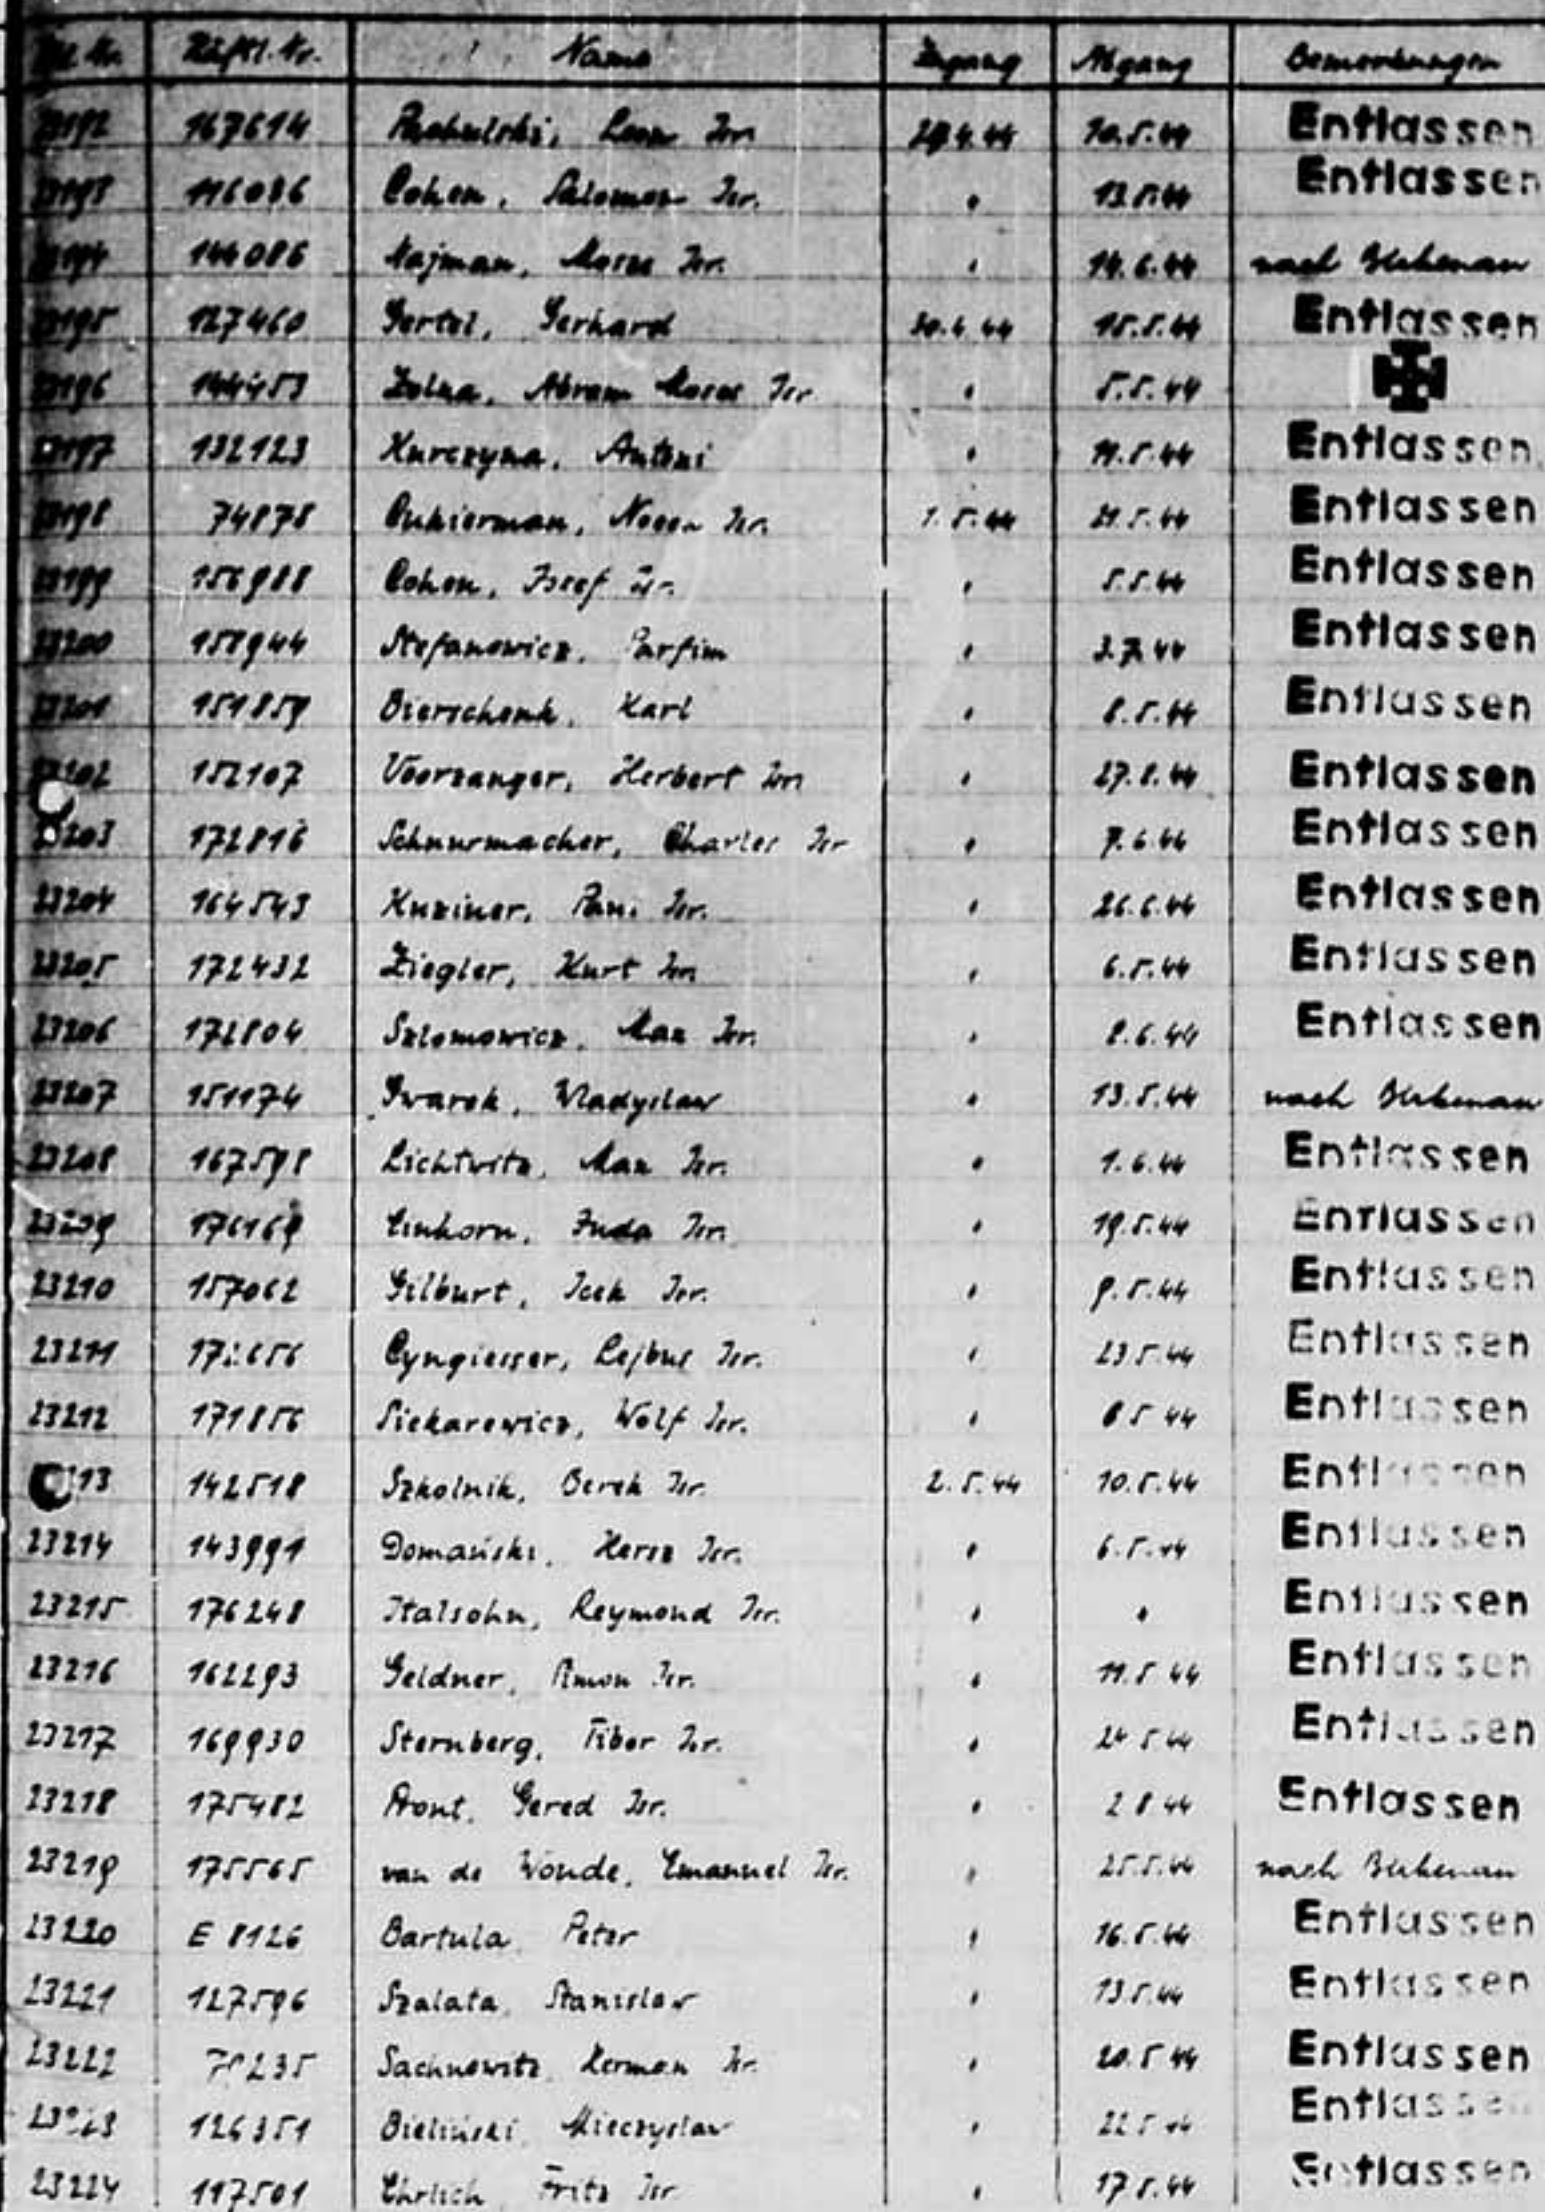 Häftl. Nr. Name Zugang Abgang Bemerkungen
23192 167614 29.4.44 10.5.44 Entlassen
23193 116086 Cohen, Salomon Isr. " 13.5.44 Entlassen
23194 144086 Najman, Mosze Isr. " 14.6.44 nach Birkenau
23195 127460 Gertel, Gerhard 30.4.44 15.5.44 Entlassen
23196 144453 Zolna, Abram Mosze Isr " 5.5.44
23197 132123 Kurczyna, Antoni " 11.5.44 Entlassen
23198 74878 Cukierman, Isr. 1.5.44 21.5.44 Entlassen
23199 156988 Cohen, Josef Isr. " 5.5.44 Entlassen
23200 158944 Stefanowicz, Parfim " 3.7.44 Entlassen
23201 151859 Bierschenk, Karl " 8.5.44 Entlassen
23202 152107 Voorzanger, Herbert Isr. " 27.8.44 Entlassen
23203 172816 Schnurmacher, Charles Isr " 7.6.44 Entlassen
23204 164543 Kuziner, Isr. " 26.6.44 Entlassen
23205 172432 Ziegler, Kurt Isr. " 6.5.44 Entlassen
23206 172804 Szlomowicz, Max Isr. " 8.6.44 Entlassen
23207 151174 Gwarek, Wladyslaw " 13.5.44 nach Birkenau
23208 167598 Lichtwitz, Max Isr. " 1.6.44 Entlassen
23209 176169 Einhorn, Juda Isr. " 19.5.44 Entlassen
23210 157062 Gilburt, Icek Isr. " 9.5.44 Entlassen
23211 172656 Cyngiesser, Lejbus Isr. " 23.5.44 Entlassen
23212 171856 Siekarewicz, Wolf Isr. " 8 5 44 Entlassen
13 142518 Szkolnik, Berek Isr. 2.5.44 10.5.44 Entlassen
23214 143991 Domański, Hersz Isr. " 6.5.44 Entlassen
23215 176248 Italsohn, Reymond Isr. " " Entlassen
23216 162293 Geldner, Amon Isr. " 11.5 44 Entlassen
23217 169930 Sternberg, Tibor Isr. " 24 5 44 Entlassen
23218 175482 Pront, Gered Isr. " 2 8 44 Entlassen
23219 175565 van de Wonde, Emanuel Isr. " 25.5.44 nach Birkenau
23220 E 8126 Bartula Peter " 16.5.44 Entlassen
23221 127596 Szalata, Stanislaw " 13.5.44 Entlassen
23222 Sachnowitz Herman Isr. " 20.5 44 Entlassen
23223 126351 Bieliński Mieczyslaw " 22 5 44 Entlassen
23224 117501 Ehrlich Fritz Isr " 17 5.44 Entlassen